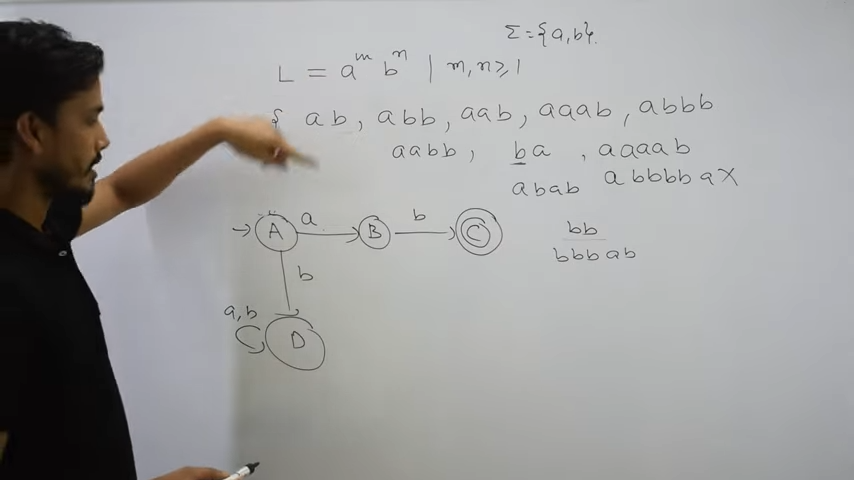 Σ = {a, b}.
L = a^m b^n | m, n ≥ 1
{ ab, abb, aab, aaab, abbb
aabb, ba, aaaab
abab abbbbaX
A a B b C
bb
bbbab
b
a,b
D